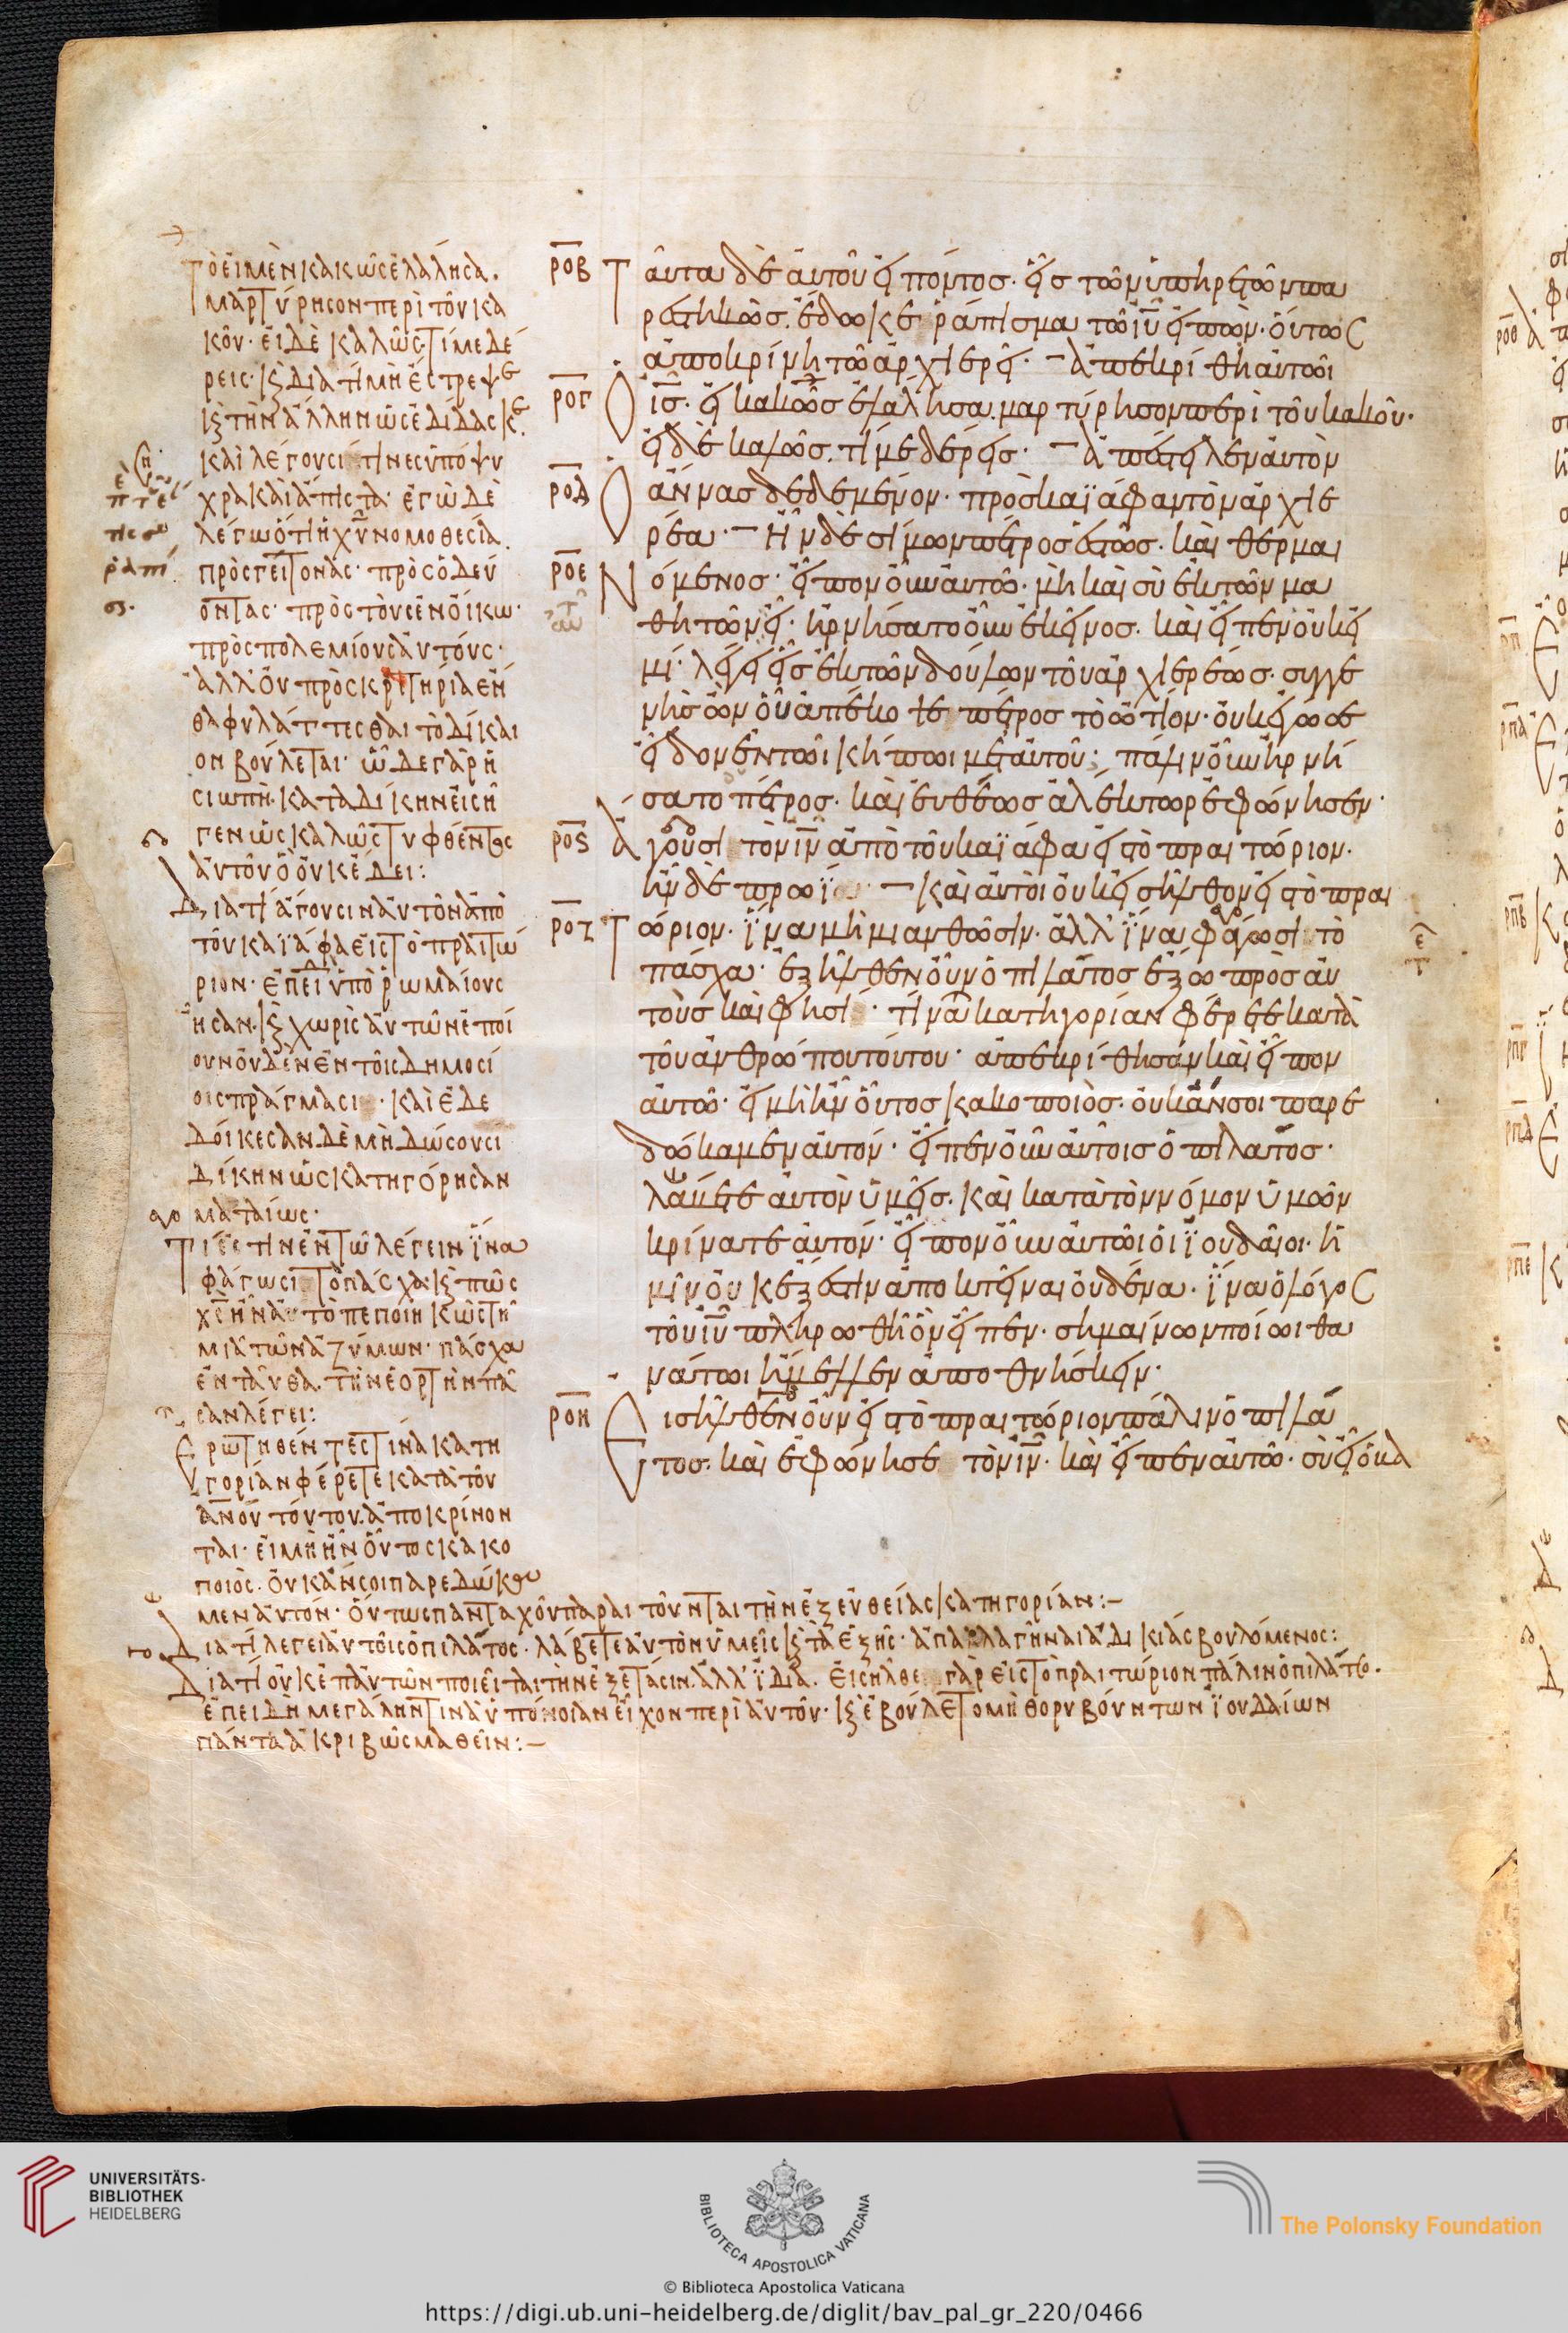 Τὸ εἰ μὲν κακῶς ἐλάλησα.
μαρτύρησον περὶ τοῦ κα
κοῦ· εἰ δὲ καλῶς τί με δέ
ρεις· κ(αὶ) διατί μὴ ἔστρεψε
κ(αὶ) τὴν ἄλλην ὡς ἐδίδασκε.
καὶ λέγουσί τινες ὑπόψυ
χρα καὶ ἄπιστα· ἐγὼ δὲ
λέγω ὅτι ἡ χῦ νομοθεσία.
πρὸς γείτονας· πρὸς ὁδεύ
οντας· πρὸς τοὺς ἐν οἴκω·
πρὸς πολεμίους αὐτούς·
ἀλλ' οὐ πρὸς κριτήρια ἔν
θα φυλάττεσθαι τὸ δίκαι
ον βούλεται· ὧδε γὰρ ἡ
σιωπὴ· καταδίκην εἰσῆ
γεν ὡς καλῶς τυφθέντος
αὐτοῦ ὃ οὐκ ἔδει:
Διατί ἄγουσιν αὐτὸν ἀπὸ
τοῦ καϊάφα εἰς τὸ πραιτώ
ριον· ἐπειδὴ ὑπὸ ῥωμαίους
ἦσαν· κ(αὶ) χωρὶς αὐτῶν ἐποί
ουν οὐδὲν ἐν τοῖς δημοσί
οις πράγμασι· καὶ ἐδε
δοίκεσαν δὲ μὴ δώσουσι
δίκην ὡς κατηγόρησαν
ματαίως·
Τί ἐστιν ἐν τῶ λέγειν ἵνα
φάγωσι τὸ πάσχα·
μιᾶ τῶν ἀζύμων· πάσχα
ἐνταῦθα τὴν ἑορτὴν πᾶ
σαν λέγει:
Ἐρωτηθέντες τίνα κατη
γορίαν φέρετε κατὰ τοῦ
ἀνου τούτου. ἀποκρίνον
ται· εἰ μὴ ἦν οὗτος κακο
ποιὸς. οὐκ ἄν σοι παρεδώκα
μεν αὐτόν· οὕτως πανταχοῦ παραιτοῦνται τὴν ἐξ εὐθείας κατηγορίαν:–
Διατί λέγει αὐτοῖς ὁ πιλᾶτος· λάβετε αὐτὸν ὑμεῖς κ(αὶ) τὰ ἑξῆς· ἀπαλλαγῆναι ἀδικίας βουλόμενος:
Διατί οὐκ ἐπ' αὐτῶν ποιεῖται τὴν ἐξέτασιν. ἀλλ' ἰδία. εἰσῆλθε γὰρ εἰς τὸ πραιτώριον πάλιν ὁ πιλᾶτος.
ἐπειδὴ μεγάλην τινὰ ὑπόνοιαν εἶχον περὶ αὐτοῦ· κ(αὶ) ἐβούλετο μὴ θορυβούντων ἰουδαίων
πάντα ἀκριβῶς μαθεῖν:–
ροβ Ταῦτα δὲ αὐτοῦ εἰπόντος· εἷς τῶν ὑπηρετῶν πα
ρεστηκὼς. ἔδωκε ῥάπισμα τῶ ιυ εἰπὼν· οὕτως
ἀποκρίνη τῶ ἀρχιερεῖ· – ἀπεκρίθη αὐτῶι
ρογ Ὁ ις. εἰ κακῶς ἐλάλησα. μαρτύρησον περὶ τοῦ κακοῦ·
εἰ δὲ καλῶς. τί με δέρεις· – ἀπέστειλεν αὐτὸν
ροδ Ὁ ἄννας δεδεμένον· πρὸς καϊάφαν τὸν ἀρχιε
ρέα· – Ἦν δὲ σίμων πέτρος ἑστὼς. καὶ θερμαι
ροε Νόμενος· εἶπον οὖν αὐτῶ· μὴ καὶ σὺ ἐκ τῶν μα
θητῶν εἶ· ἠρνήσατο οὖν ἐκεῖνος. καὶ εἶπεν οὐκ εἰ
μί· λέγει εἷς ἐκ τῶν δούλων τοῦ ἀρχιερέως· συγγε
νὴς ὢν οὗ ἀπέκοψε πέτρος τὸ ὠτίον· οὐκ ἐγώ σε
εἶδον ἐν τῶι κήπωι μετ' αὐτοῦ; πάλιν οὖν ἠρνή
σατο πέτρος. καὶ εὐθέως ἀλέκτωρ ἐφώνησεν·
ρος Ἄγουσι τὸν ιν ἀπὸ τοῦ καϊάφα εἰς τὸ πραιτώριον.
ἦν δὲ πρωΐ – Καὶ αὐτοὶ οὐκ εἰσῆλθον εἰς τὸ πραι
ροζ Τώριον. ἵνα μὴ μιανθῶσιν· ἀλλ' ἵνα φάγωσι τὸ
πάσχα· ἐξῆλθεν οὖν ὁ πιλᾶτος ἔξω πρὸς αὐ
τοὺς καὶ φησὶ· τίνα κατηγορίαν φέρετε κατὰ
τοῦ ἀνθρώπου τούτου· ἀπεκρίθησαν καὶ εἶπον
αὐτῶ· εἰ μὴ ἦν οὗτος κακοποιὸς. οὐκ ἄν σοι παρε
δώκαμεν αὐτόν· εἶπεν οὖν αὐτοῖς ὁ πιλᾶτος·
λάβετε αὐτὸν ὑμεῖς. καὶ κατὰ τὸν νόμον ὑμῶν
κρίνατε αὐτόν· εἶπον οὖν αὐτῶι οἱ ἰουδαῖοι· ἡ
μῖν οὐκ ἔξεστιν ἀποκτεῖναι οὐδένα· ἵνα ὁ λόγος
τοῦ ιυ πληρωθῆ ὃν εἶπεν. σημαίνων ποίωι θα
νάτωι ἤμελλεν ἀποθνήσκειν·
ροη Εἰσῆλθεν οὖν εἰς τὸ πραιτώριον πάλιν ὁ πιλᾶ
τος. καὶ ἐφώνησε τὸν ιν. καὶ εἶπεν αὐτῶ· σὺ εἶ ὁ βα
UNIVERSITÄTS-
BIBLIOTHEK
HEIDELBERG
BIBLIOTECA APOSTOLICA VATICANA
The Polonsky Foundation
© Biblioteca Apostolica Vaticana
https://digi.ub.uni-heidelberg.de/diglit/bav_pal_gr_220/0466